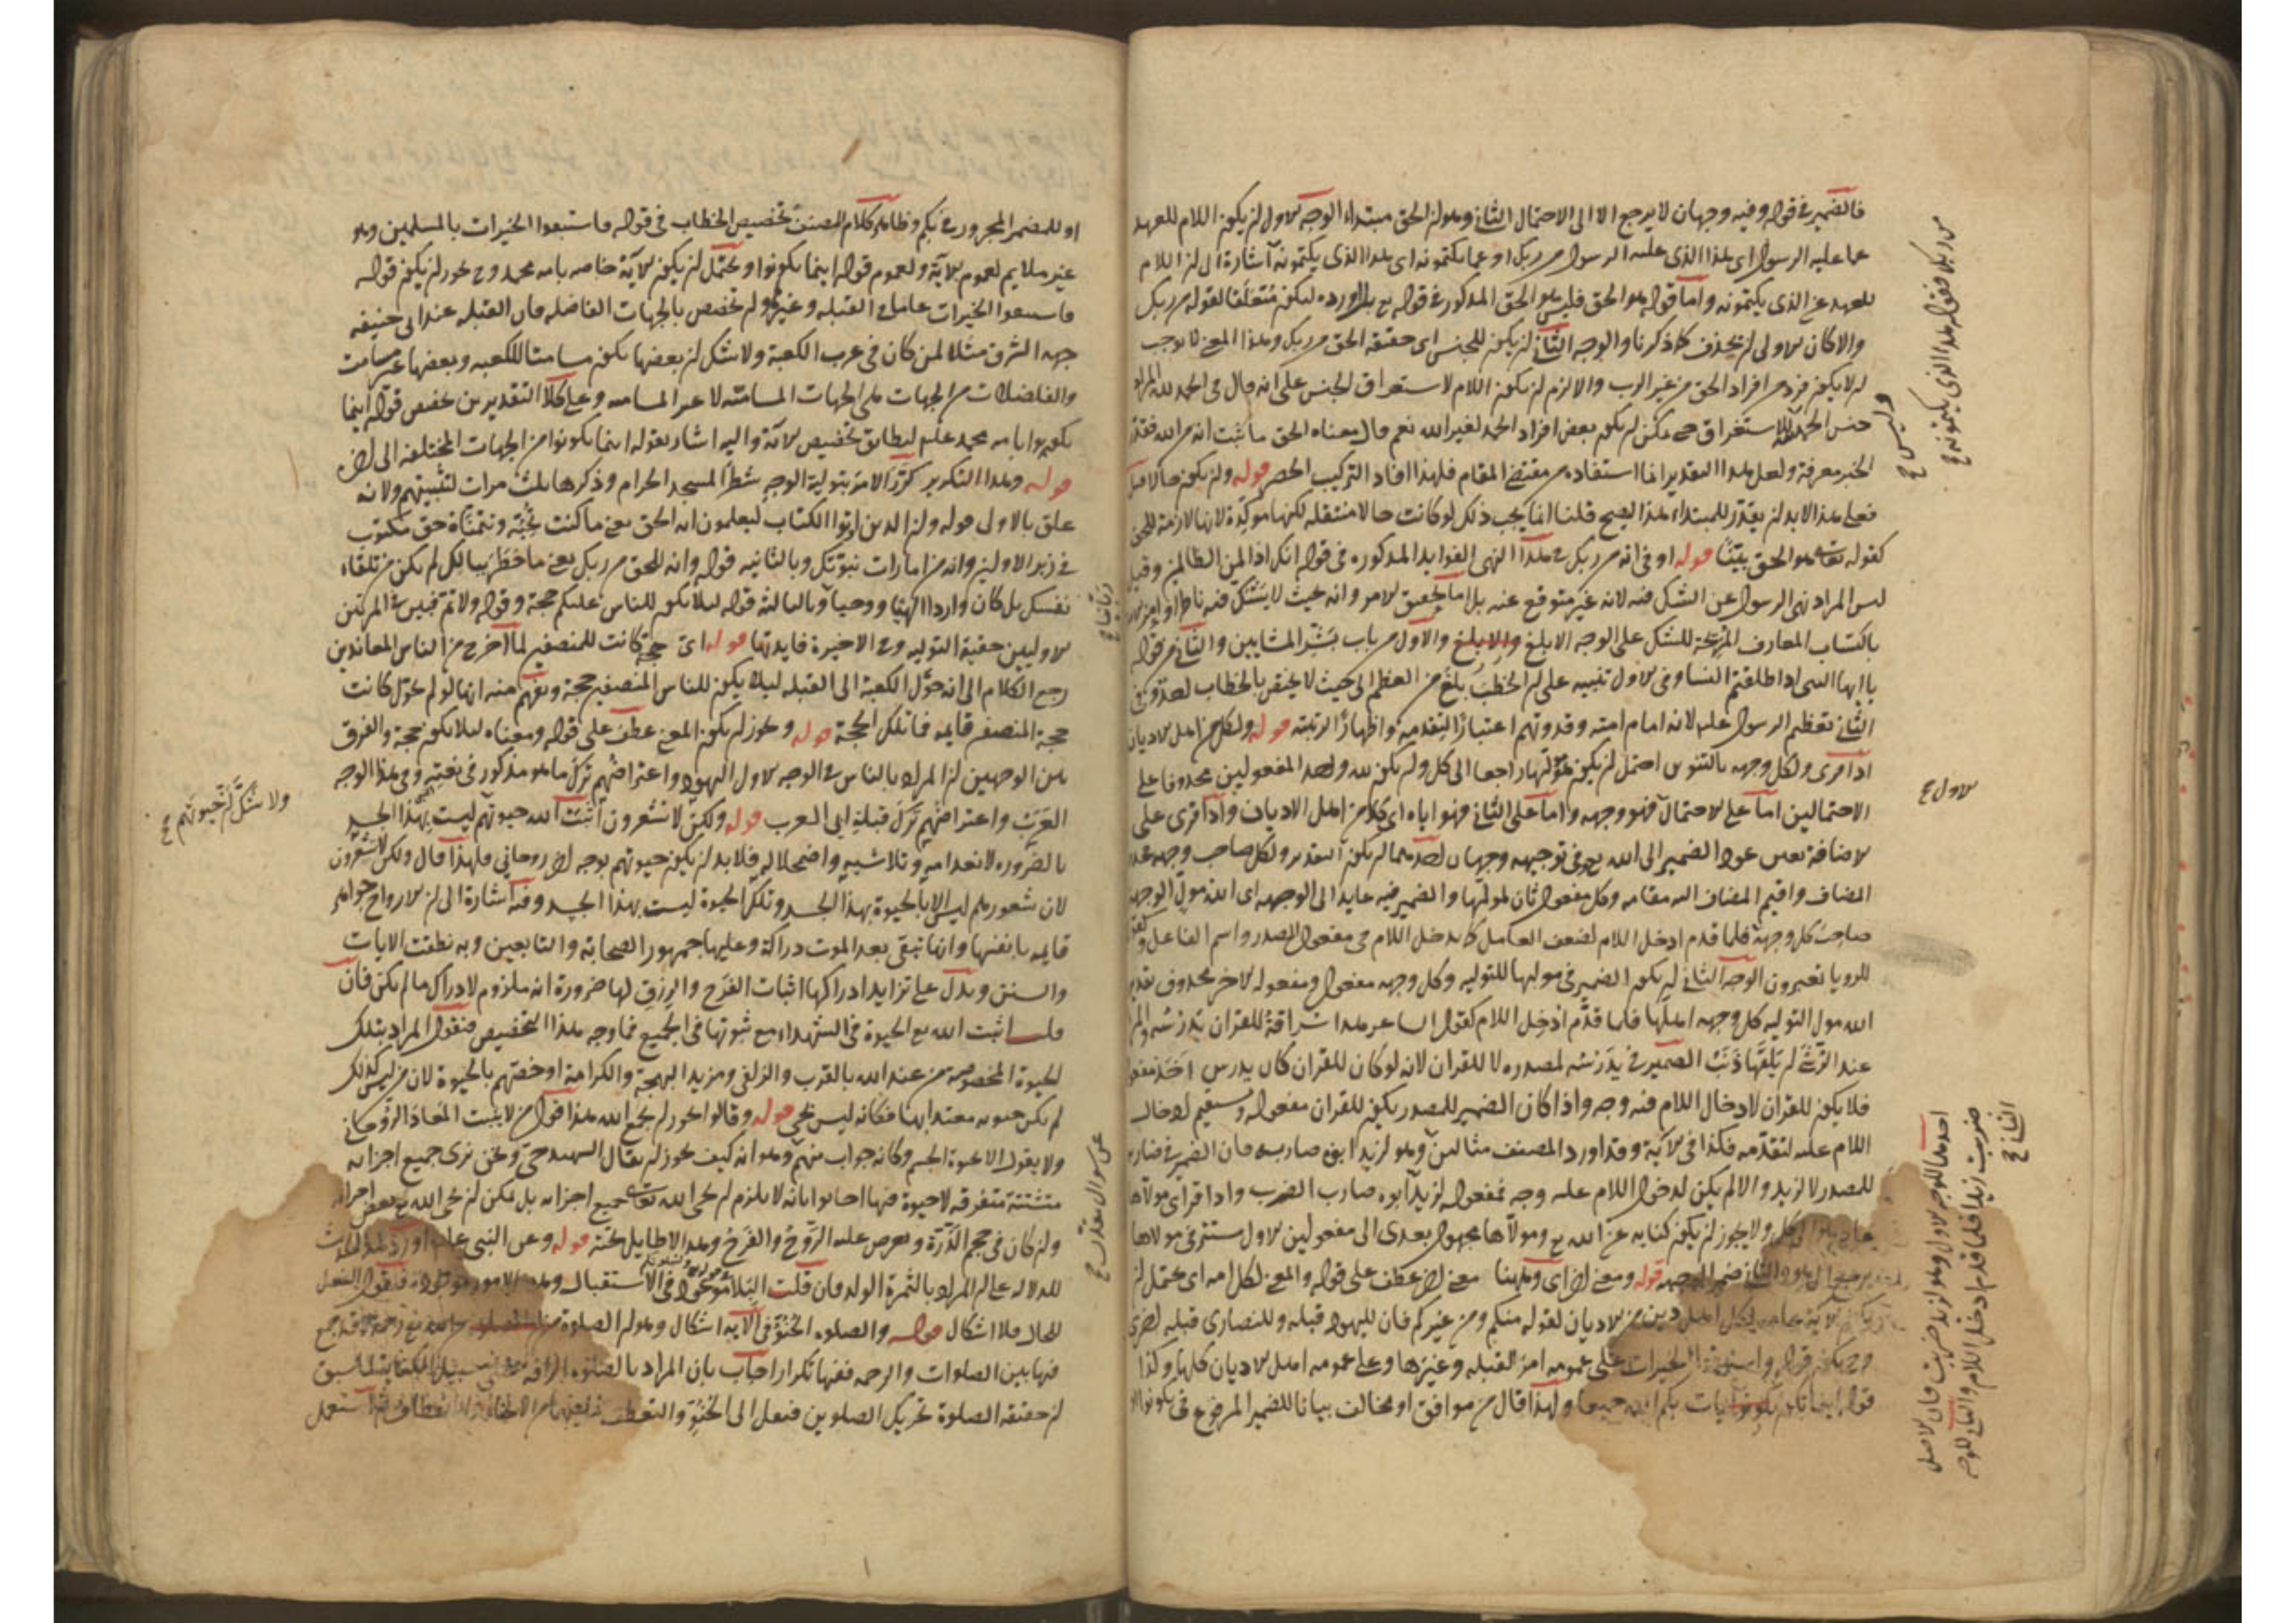 فالضمير في قوله وفيه وجهان لا يرجع الا الى الاحتمال الثاني وهو ان الحق مبتداء الوجه الاول ان يكون اللام للعهد
عما عليه الرسول اى هذا الذى عليه الرسول من ربك او عما يكتمونه اى هذا الذى يكتمونه اشارة الى ان اللام
للعهد عن الذى يكتمونه واما قوله هو الحق فليس هو الحق المذكور في قوله ليكون متعلقا لقوله من ربك
والا كان الاولى ان يحذف كما ذكرنا والوجه الثاني ان يكون للجنس اى حقيقة الحق من ربك وهذا المعنى لا يوجب
ان لا يكون فرد من افراد الحق من غير الرب والا لزم ان يكون اللام لاستغراق الجنس على انه قال في الحمد لله
جنس الحمد يمكن ان يكون بعض افراد الحمد لغير الله نعم قال معناه الحق ما ثبت انه من الله
الخبر معرفة ولعل هذا التقدير انما استفاده من مقتضى المقام فلهذا افاد التركيب الحصر قوله وان يكون حالا
فعلى هذا لا بد ان يقدر للمبتداء هذا ليصح قلنا انما يجب ذلك لو كانت حالا منتقلة لكنها موكدة لانها لازمة للحق
كقوله تعالى هو الحق بينا قوله او في انه من ربك في هذا النهى الفوايد المذكورة في قوله انك اذا لمن الظالمين
ليس المراد نهى الرسول عن الشك فيه لانه غير متوقع عنه بل اما لتحقيق الامر وانه بحيث لا يشك فيه ناظر
باكتساب المعارف المزيحة للشك على الوجه الابلغ والاول من باب بشر المشايين والثاني من قوله
يا ايها النبي اذا طلقتم النساء وفي الاول تنبيه على ان الخطب بلغ من العظم الى حيث لا يختص بالخطاب
الثاني تعظيم الرسول عليه لانه امام امته وقدوتهم اعتبارا لتقدمه واظهارا لرتبته قوله ولكل من اهل الاديان
اذا قرى ولكل وجهة بالتنوين احتمل ان يكون هو راجعا الى كل وان يكون لله واحد المفعولين محذوفا على
الاحتمالين اما على الاحتمال فهو وجهه واما على الثاني فهو اياه اى كلا من اهل الاديان واذا قرى على
الاضافة تعين عود الضمير الى الله وفي توجيهه وجهان احدهما ان يكون التقدير ولكل صاحب وجهة
المضاف واقيم المضاف اليه مقامه وكل مفعول ثان لموليها والضمير فيه عايد الى الوجهة اى الله مول الوجهة
صاحب كل وجهة فلما قدم ادخل اللام لضعف العامل كما يدخل اللام في مفعول المصدر واسم الفاعل
للرويا تعبرون الوجه الثاني ان يكون الضمير في موليها للتولية وكل وجهة مفعول ومفعوله الاخر محذوف
الله مول التولية كل وجهة اهلها فلما قدم ادخل اللام كقول الشاعر هذا سراقة للقران يدرسه
عند الرشى ان يلقها ذيب الضمير في يدرسه لمصدره لا للقران لانه لو كان للقران كان يدرس اخذ
فلا يكون للقران لادخال اللام فيه وجه واذا كان الضمير للمصدر يكون للقران مفعوله ويستقيم ادخال
اللام عليه لتقدمه فكذا في الاية وقد اورد المصنف مثالين وهو لزيد ابوه ضاربه فان الضمير في ضاربه
للمصدر لا لزيد والا لم يكن لدخول اللام عليه وجه فمفعوله لزيد ابوه ضارب الضرب واذا قراى مولاها
ولا يجوز ان يكون كناية عن الله ومولاها مجهول يعدى الى مفعولين الاول مستتر في مولاها
والثاني ضمير الوجهة قوله ومعنى اخر عطف على قوله والمعنى لكل امة اى يحتمل ان
الاية عامة لكل اهل دين من الاديان لقوله منكم ومن غيركم فان لليهود قبلة وللنصارى قبلة اخرى
الخيرات على عمومه امر القبلة وغيرها وعلى عمومه اهل الاديان كلها وكذا
قوله اينما تكونوا يات بكم الله جميعا ولهذا قال من موافق او مخالف بيانا للضمير المرفوع في تكونوا
من ربك فقوله هذا الذى يكتمونه
وليس
الاول
احدهما للوجه الاول وهو لزيد ضربت فان الاصل
ضربت زيدا فلما قدم ادخل اللام والثاني للوجه
الثاني
او للضمير المجرور في بكم وظاهر كلام المصنف تخصيص الخطاب في قوله فاستبقوا الخيرات بالمسلمين وهو
غير ملايم لعموم الاية ولعموم قوله اينما تكونوا ويحتمل ان يكون الاية خاصة بامة محمد وح يجوز ان يكون قوله
فاستبقوا الخيرات عاما في القبلة وغيرها وان يخصص بالجهات الفاضلة فان القبلة عند ابى حنيفة
جهة الشرق مثلا لمن كان في غرب الكعبة ولا شك ان بعضها يكون مسامتا للكعبة وبعضها غير مسامت
والفاضلات من الجهات هى الجهات المسامتة لا غير المسامتة وعلى كلا التقديرين تخصيص قوله اينما
تكونوا بامة محمد عليه ليطابق تخصيص الاية واليه اشار بقوله اينما تكونوا من الجهات المختلفة الى اخره
قوله وهذا التكرير كرر الامر بتولية الوجه شطر المسجد الحرام وذكرها ثلث مرات لتثبيتهم ولانه
علق بالاول قوله وان الذين اوتوا الكتاب ليعلمون انه الحق يعنى ما كنت تحبه وتتمناه حق مكتوب
في زبر الاولين وانه من امارات نبوتك وبالثانية قوله وانه للحق من ربك يعنى ما خطر ببالك لم يكن من تلقاء
نفسك بل كان واردا الهيا ووحيا وبالثالثة قوله لئلا يكون للناس عليكم حجة وقوله ولاتم فبين في المرتين
الاوليين حقية التولية وفي الاخيرة فايدتها قوله اى حجة كانت للمنصفين لما اخرج من الناس المعاندين
رجع الكلام الى انه حول الكعبة الى القبلة ليلا يكون للناس المنصفين حجة ويفهم منه انها لو لم تحول كانت
حجة المنصفين قايمة فما تلك الحجة قوله ويجوز ان يكون المعنى عطف على قوله ومعناه ليلا يكون حجة والفرق
بين الوجهين ان المراد بالناس في الوجه الاول اليهود واعتراضهم ترك ما هو مذكور في نعته وفي هذا الوجه
العرب واعتراضهم ترك قبلة ابى العرب قوله ولكن لا تشعرون اثبت الله حيوتهم ليست بهذا الجسد
بالضرورة لانعدامه وتلاشيه واضمحلاله فلا بد ان يكون حيوتهم بوجه اخر روحاني فلهذا قال ولكن لا تشعرون
لان شعورهم ليس الا بالحيوة بهذا الجسد وتلك الحيوة ليست بهذا الجسد وفيه اشارة الى ان الارواح جواهر
قايمة بانفسها وانها تبقى بعد الموت دراكة وعليها جمهور الصحابة والتابعين وبه نطقت الايات
والسنن ويدل على تزايد ادراكها اثبات الفرح والرزق لها ضرورة انه ملزوم لادراك ما لم يكن فان
قلت اثبت الله الحيوة في الشهداء مع ثبوتها في الجميع فما وجه هذا التخصيص فنقول المراد بتلك
الحيوة المخصوصة من عند الله بالقرب والزلفى ومزيد البهجة والكرامة او خصهم بالحيوة لان من ليس كذلك
لم يكن حيوته معتدا بها فكانه ليس بحي قوله وقالوا يجوز ان يجمع الله هذا قول من لا يثبت المعاد الروحاني
ولا يقول الا بحيوة الجسم وكانه جواب منهم وهو انه كيف يجوز ان يقال الشهيد حي ونحن نرى جميع اجزائه
متشتتة متفرقة لا حيوة فيها اجابوا بانه لا يلزم ان يحيى الله تعالى جميع اجزائه بل يمكن ان يحيى الله بعض اجزائه
وان كان في حجم الذرة ويعرض عليه الروح والفرح وهذا لا طايل تحته قوله وعن النبى عليه اورد هذا الحديث
للدلالة على ان المراد بالثمرة الولد فان قلت في الاستقبال وهذه الامور
للحال فلا اشكال قوله والصلوة الحنو في الاية اشكال وهو ان الصلوة من الله
فيها بين الصلوات والرحمة ففيها تكرار اجاب بان المراد بالصلوة الرافة
ان حقيقة الصلوة تحريك الصلوين فنقل الى الحنو والتعطف
ولا شك ان حيوتهم